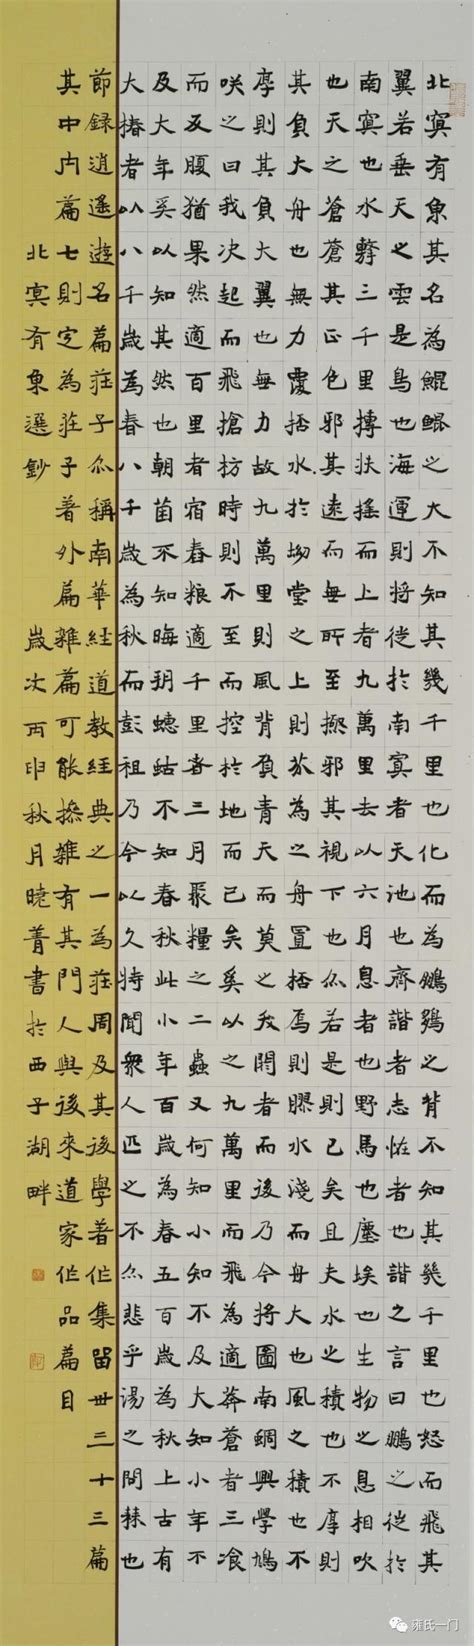 北冥有魚其名為鯤鯤之大不知其幾千里也化而為鵬鵬之背不知其幾千里也怒而飛其
翼若垂天之雲是鳥也海運則將徙於南冥者天池也齊諧者志恠者也諧之言曰鵬之徙於
南冥也水擊三千里摶扶搖而上者九萬里去以六月息者也野馬也塵埃也生物之息相吹
也天之蒼蒼其正色邪其遠而無所至極邪其視下也亦若是則已矣且夫水之積也不厚則
其負大舟也無力覆桮水於坳堂之上則芥為之舟置桮焉則膠水淺而舟大也風之積也不
厚則其負大翼也無力故九萬里則風背負青天而莫之夭閼者而後乃今將圖南蜩與學鳩
咲之曰我決起而飛搶枋時則不至而控於地而已矣奚以之九萬里而飛為適莽蒼者三飡
而反腹猶果然適百里者宿舂粮適千里者三月聚糧之二蟲又何知小知不及大知小年不
及大年奚以知其然也朝菌不知晦朔蟪蛄不知春秋此小年百歲為春五百歲為秋上古有
大椿者以八千歲為春八千歲為秋而彭祖乃今以久特聞衆人匹之不亦悲乎湯之問棘也
節録逍遙遊名篇莊子亦稱南華經道教經典之一為莊周及其後學著作集留世三十三篇
其中内篇七則定為莊子著外篇雜篇可能摻雜有其門人與後來道家作品篇目
北冥有魚選鈔 歲次丙申秋月菁書於西子湖畔
雍氏一门